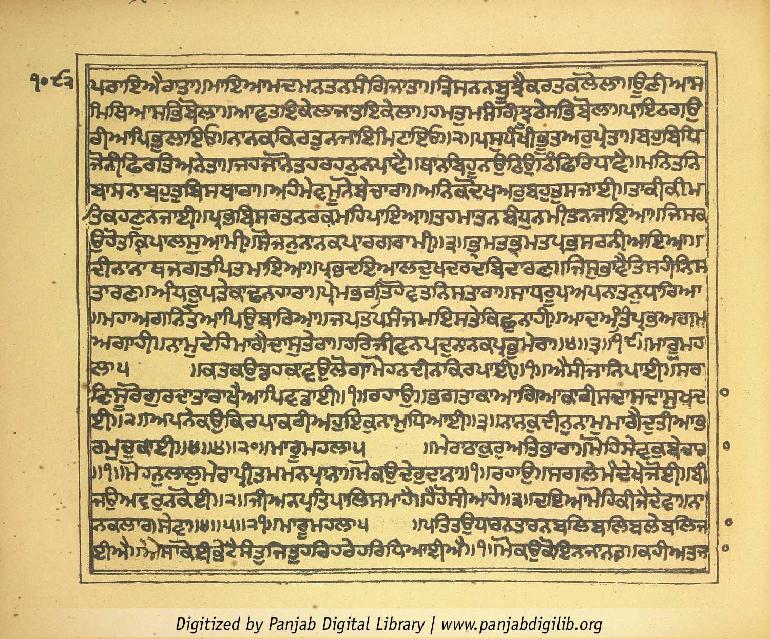 ੧੦੬੩
ਪਰਾਇਐਰਾਤਾ॥ਮਾਇਆਮਦਮਨਤਨਸੰਗਿਜਾਤਾ॥ਤ੍ਰਿਸਨਨਬੂਝੈਕਰਤਕਲੋਲਾ॥ਊਣੀਆਸ
ਮਿਥਿਆਸਭਿਬੋਲਾ॥ਆਵਤਇਕੇਲਾਜਾਤਇਕੇਲਾ॥ਹਮਤੁਮਸੰਗਿਝੂਠੇਸਭਿਬੋਲਾ॥ਪਾਇਠਗਉ
ਰੀਆਪਿਭੁਲਾਇਓ॥ਨਾਨਕਕਿਰਤੁਨਜਾਇਮਿਟਾਇਓ॥੨॥ਪਸੁਪੰਖੀਭੂਤਅਰੁਪ੍ਰੇਤਾ॥ਬਹੁਬਿਧਿ
ਜੋਨੀਫਿਰਤਅਨੇਤਾ॥ਜਹਜਾਨੋਤਹਰਹਨੁਨਪਾਵੈ॥ਥਾਨਬਿਹੂਨਉਠਿਉਠਿਫਿਰਿਧਾਵੈ॥ਮਨਿਤਨਿ
ਬਾਸਨਾਬਹੁਤੁਬਿਸਥਾਰਾ॥ਅਹੰਮੇਵਮੂਠੋਬੇਚਾਰਾ॥ਅਨਿਕਦੋਖਅਰੁਬਹੁਤੁਸਜਾਈ॥ਤਾਕੀਕੀਮ
ਤਿਕਹਣੁਨਜਾਈ॥ਪ੍ਰਭਬਿਸਰਤਨਰਕਮਹਿਪਾਇਆ॥ਤਹਮਾਤਨਬੰਧੁਨਮੀਤਨਜਾਇਆ॥ਜਿਸਕ
ਉਹੋਤਕ੍ਰਿਪਾਲਸੁਆਮੀ॥ਸੋਜਨੁਨਾਨਕਪਾਰਗਰਾਮੀ॥੩॥ਭ੍ਰਮਤਭ੍ਰਮਤਪ੍ਰਭਸਰਨੀਆਇਆ॥
ਦੀਨਾਨਾਥਜਗਤਪਿਤਮਾਇਆ॥ਪ੍ਰਭਦਇਆਲਦੁਖਦਰਦਬਿਦਾਰਣ॥ਜਿਸੁਭਾਵੈਤਿਸਹੀਨਿਸ
ਤਾਰਣ॥ਅੰਧਕੂਪਤੇਕਾਢਨਹਾਰਾ॥ਪ੍ਰੇਮਭਗਤਿਹੋਵਤਨਿਸਤਾਰਾ॥ਸਾਧਰੂਪਅਪਨਾਤਨੁਧਾਰਿਆ
॥ਮਹਾਅਗਨਿਤੇਆਪਿਉਬਾਰਿਆ॥ਜਪਤਪਸੰਜਮਇਸਤੇਕਿਛੁਨਾਹੀ॥ਆਦਿਅੰਤਿਪ੍ਰਭਅਗਮ
ਅਗਾਹੀ॥ਨਾਮੁਦੇਹਿਮਾਗੈਦਾਸੁਤੇਰਾ॥ਹਰਿਜੀਵਨਪਦੁਨਾਨਕਪ੍ਰਭੁਮੇਰਾ॥੪॥੩॥੧੯॥ਮਾਰੂਮਹ
ਲਾ੫ ॥ਕਤਕਉਡਹਕਾਵਹੁਲੋਗਾਮੋਹਨਦੀਨਕਿਰਪਾਈ॥੧॥ਐਸੀਜਾਨਿਪਾਈ॥ਸਰ
ਣਿਸੂਰੋਗੁਰਦਾਤਾਰਾਖੈਆਪਿਵਡਾਈ॥੧॥ਰਹਾਉ॥ਭਗਤਾਕਾਆਗਿਆਕਾਰੀਸਦਾਸਦਾਸੁਖਦ
ਈ॥੨॥ਅਪਨੇਕਉਕਿਰਪਾਕਰੀਅਹੁਇਕੁਨਾਮੁਧਿਆਈ॥੩॥ਨਾਨਕੁਦੀਨੁਨਾਮੁਮਾਗੈਦੁਤੀਆਭ
ਰਮੁਚੁਕਾਈ॥੪॥੪॥੨੦॥ਮਾਰੂਮਹਲਾ੫ ॥ਮੇਰਾਠਾਕੁਰੁਅਤਿਭਾਰਾ॥ਮੋਹਿਸੇਵਕੁਬੇਚਾਰ
॥੧॥ਮੋਹਨੁਲਾਲੁਮੇਰਾਪ੍ਰੀਤਮਮਨਪ੍ਰਾਨਾ॥ਮੋਕਉਦੇਹੁਦਾਨਾ॥੧॥ਰਹਾਉ॥ਸਗਲੇਮੈਦੇਖੇਜੋਈ॥ਬੀ
ਜਉਅਵਰੁਨਕੋਈ॥੨॥ਜੀਅਨਪ੍ਰਤਿਪਾਲਿਸਮਾਹੈ॥ਹੈਹੋਸੀਆਹੇ॥੩॥ਦਇਆਮੋਹਿਕੀਜੈਦੇਵਾ॥ਨਾ
ਨਕਲਾਗੋਸੇਵਾ॥੪॥੫॥੨੧॥ਮਾਰੂਮਹਲਾ੫ ॥ਪਤਿਤਉਧਾਰਨਤਾਰਨਬਲਿਬਲਿਬਲੇਬਲਿਜ
ਈਐ॥ਐਸਾਕੋਈਭੇਟੈਸੰਤੁਜਿਤੁਹਰਿਹਰੇਹਰਿਧਿਆਈਐ॥੧॥ਮੋਕਉਕੋਇਨਜਾਨਤ॥ਕਹੀਅਤਦ
Digitized by Panjab Digital Library | www.panjabdigilib.org